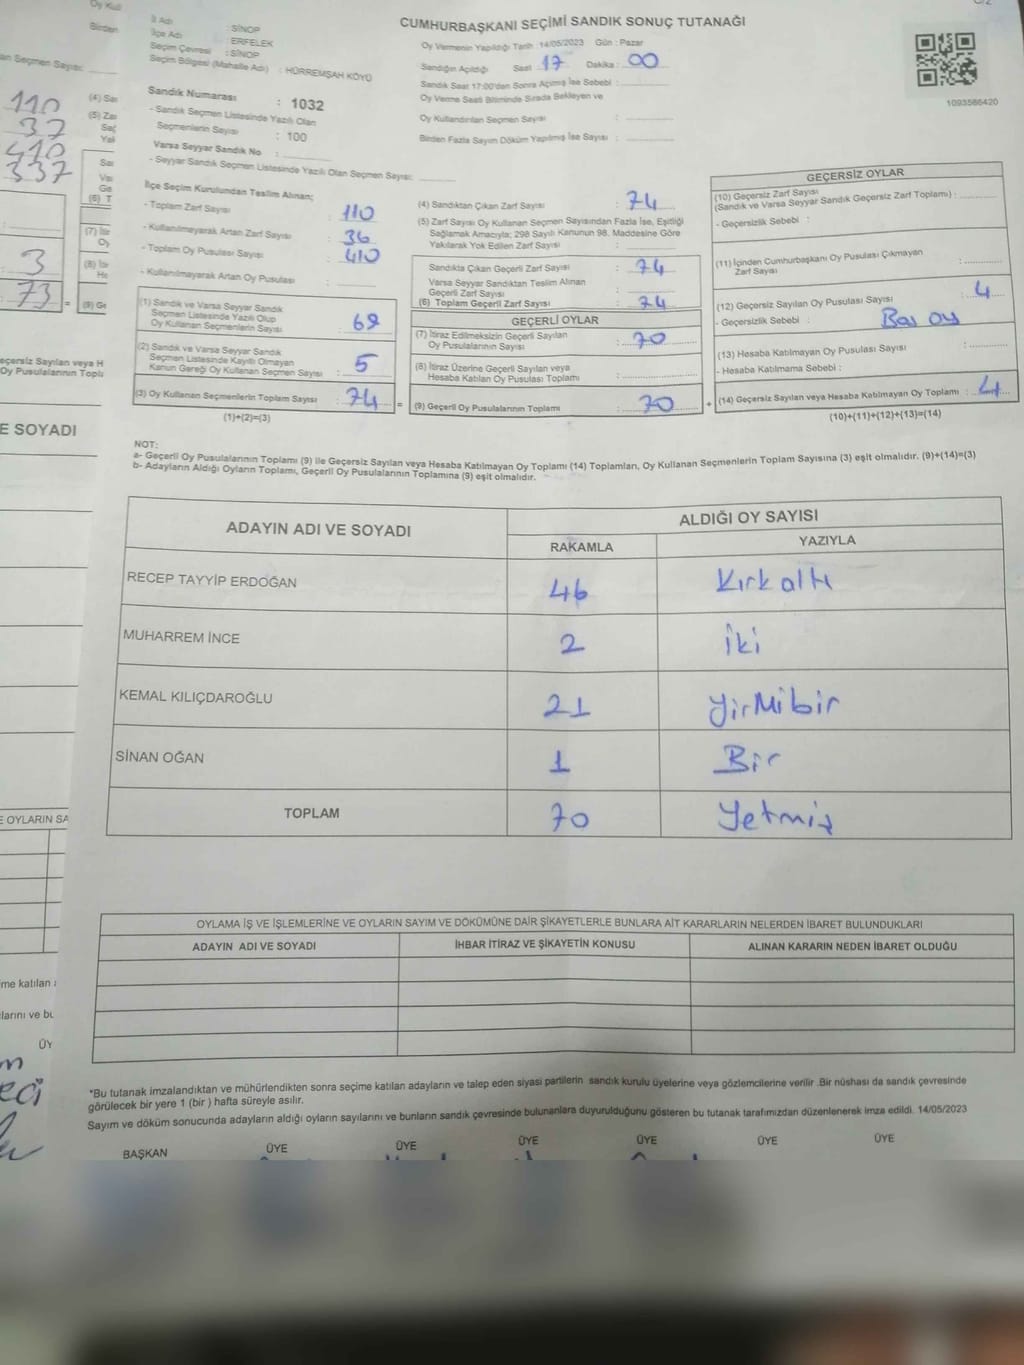 CUMHURBAŞKANI SEÇİMİ SANDIK SONUÇ TUTANAĞI
İl Adı : SİNOP
İlçe Adı : ERFELEK
Seçim Çevresi : SİNOP
Seçim Bölgesi (Mahalle Adı) : HÜRREMŞAH KÖYÜ
Sandık Numarası : 1032
- Sandık Seçmen Listesinde Yazılı Olan
Seçmenlerin Sayısı : 100
Varsa Seyyar Sandık No :
- Seyyar Sandık Seçmen Listesinde Yazılı Olan Seçmen Sayısı:
Oy Vermenin Yapıldığı Tarih :14/05/2023 Gün : Pazar
Sandığın Açıldığı Saat : 17 Dakika : 00
Sandık Saat 17:00'den Sonra Açılmış İse Sebebi :
Oy Verme Saati Bitiminde Sırada Bekleyen ve
Oy Kullandırılan Seçmen Sayısı :
Birden Fazla Sayım Döküm Yapılmış İse Sayısı :
1093586420
İlçe Seçim Kurulundan Teslim Alınan;
- Toplam Zarf Sayısı : 110
- Kullanılmayarak Artan Zarf Sayısı : 36
- Toplam Oy Pusulası Sayısı : 410
- Kullanılmayarak Artan Oy Pusulası :
(1) Sandık ve Varsa Seyyar Sandık
Seçmen Listesinde Yazılı Olup
Oy Kullanan Seçmenlerin Sayısı : 69
(2) Sandık ve Varsa Seyyar Sandık
Seçmen Listesinde Kayıtlı Olmayan
Kanun Gereği Oy Kullanan Seçmen Sayısı : 5
(3) Oy Kullanan Seçmenlerin Toplam Sayısı : 74 =
(1)+(2)=(3)
(4) Sandıktan Çıkan Zarf Sayısı : 74
(5) Zarf Sayısı Oy Kullanan Seçmen Sayısından Fazla İse, Eşitliği
Sağlamak Amacıyla; 298 Sayılı Kanunun 98. Maddesine Göre
Yakılarak Yok Edilen Zarf Sayısı :
Sandıkta Çıkan Geçerli Zarf Sayısı : 74
Varsa Seyyar Sandıktan Teslim Alınan
Geçerli Zarf Sayısı :
(6) Toplam Geçerli Zarf Sayısı : 74
GEÇERLİ OYLAR
(7) İtiraz Edilmeksizin Geçerli Sayılan
Oy Pusulalarının Sayısı : 70
(8) İtiraz Üzerine Geçerli Sayılan veya
Hesaba Katılan Oy Pusulası Toplamı :
(9) Geçerli Oy Pusulalarının Toplamı : 70 +
GEÇERSİZ OYLAR
(10) Geçersiz Zarf Sayısı
(Sandık ve Varsa Seyyar Sandık Geçersiz Zarf Toplamı) :
- Geçersizlik Sebebi :
(11) İçinden Cumhurbaşkanı Oy Pusulası Çıkmayan
Zarf Sayısı :
(12) Geçersiz Sayılan Oy Pusulası Sayısı : 4
- Geçersizlik Sebebi : Boş oy
(13) Hesaba Katılmayan Oy Pusulası Sayısı :
- Hesaba Katılmama Sebebi :
(14) Geçersiz Sayılan veya Hesaba Katılmayan Oy Toplamı : 4
(10)+(11)+(12)+(13)=(14)
NOT:
a- Geçerli Oy Pusulalarının Toplamı (9) ile Geçersiz Sayılan veya Hesaba Katılmayan Oy Toplamı (14) Toplamları, Oy Kullanan Seçmenlerin Toplam Sayısına (3) eşit olmalıdır. (9)+(14)=(3)
b- Adayların Aldığı Oyların Toplamı, Geçerli Oy Pusulalarının Toplamına (9) eşit olmalıdır.
ADAYIN ADI VE SOYADI ALDIĞI OY SAYISI
RAKAMLA YAZIYLA
RECEP TAYYİP ERDOĞAN 46 Kırkaltı
MUHARREM İNCE 2 İki
KEMAL KILIÇDAROĞLU 21 YirMibir
SİNAN OĞAN 1 Bir
TOPLAM 70 Yetmiş
OYLAMA İŞ VE İŞLEMLERİNE VE OYLARIN SAYIM VE DÖKÜMÜNE DAİR ŞİKAYETLERLE BUNLARA AİT KARARLARIN NELERDEN İBARET BULUNDUKLARI
ADAYIN ADI VE SOYADI İHBAR İTİRAZ VE ŞİKAYETİN KONUSU ALINAN KARARIN NEDEN İBARET OLDUĞU
*Bu tutanak imzalandıktan ve mühürlendikten sonra seçime katılan adayların ve talep eden siyasi partilerin sandık kurulu üyelerine veya gözlemcilerine verilir .Bir nüshası da sandık çevresinde
görülecek bir yere 1 (bir ) hafta süreyle asılır.
Sayım ve döküm sonucunda adayların aldığı oyların sayılarını ve bunların sandık çevresinde bulunanlara duyurulduğunu gösteren bu tutanak tarafımızdan düzenlenerek imza edildi. 14/05/2023
BAŞKAN ÜYE ÜYE ÜYE ÜYE ÜYE ÜYE
Oy Kull
Birden
an Seçmen Sayısı:
110
37
410
337
3
73
E SOYADI
E OYLARIN SA
me katılan
larını ve bu
ÜY